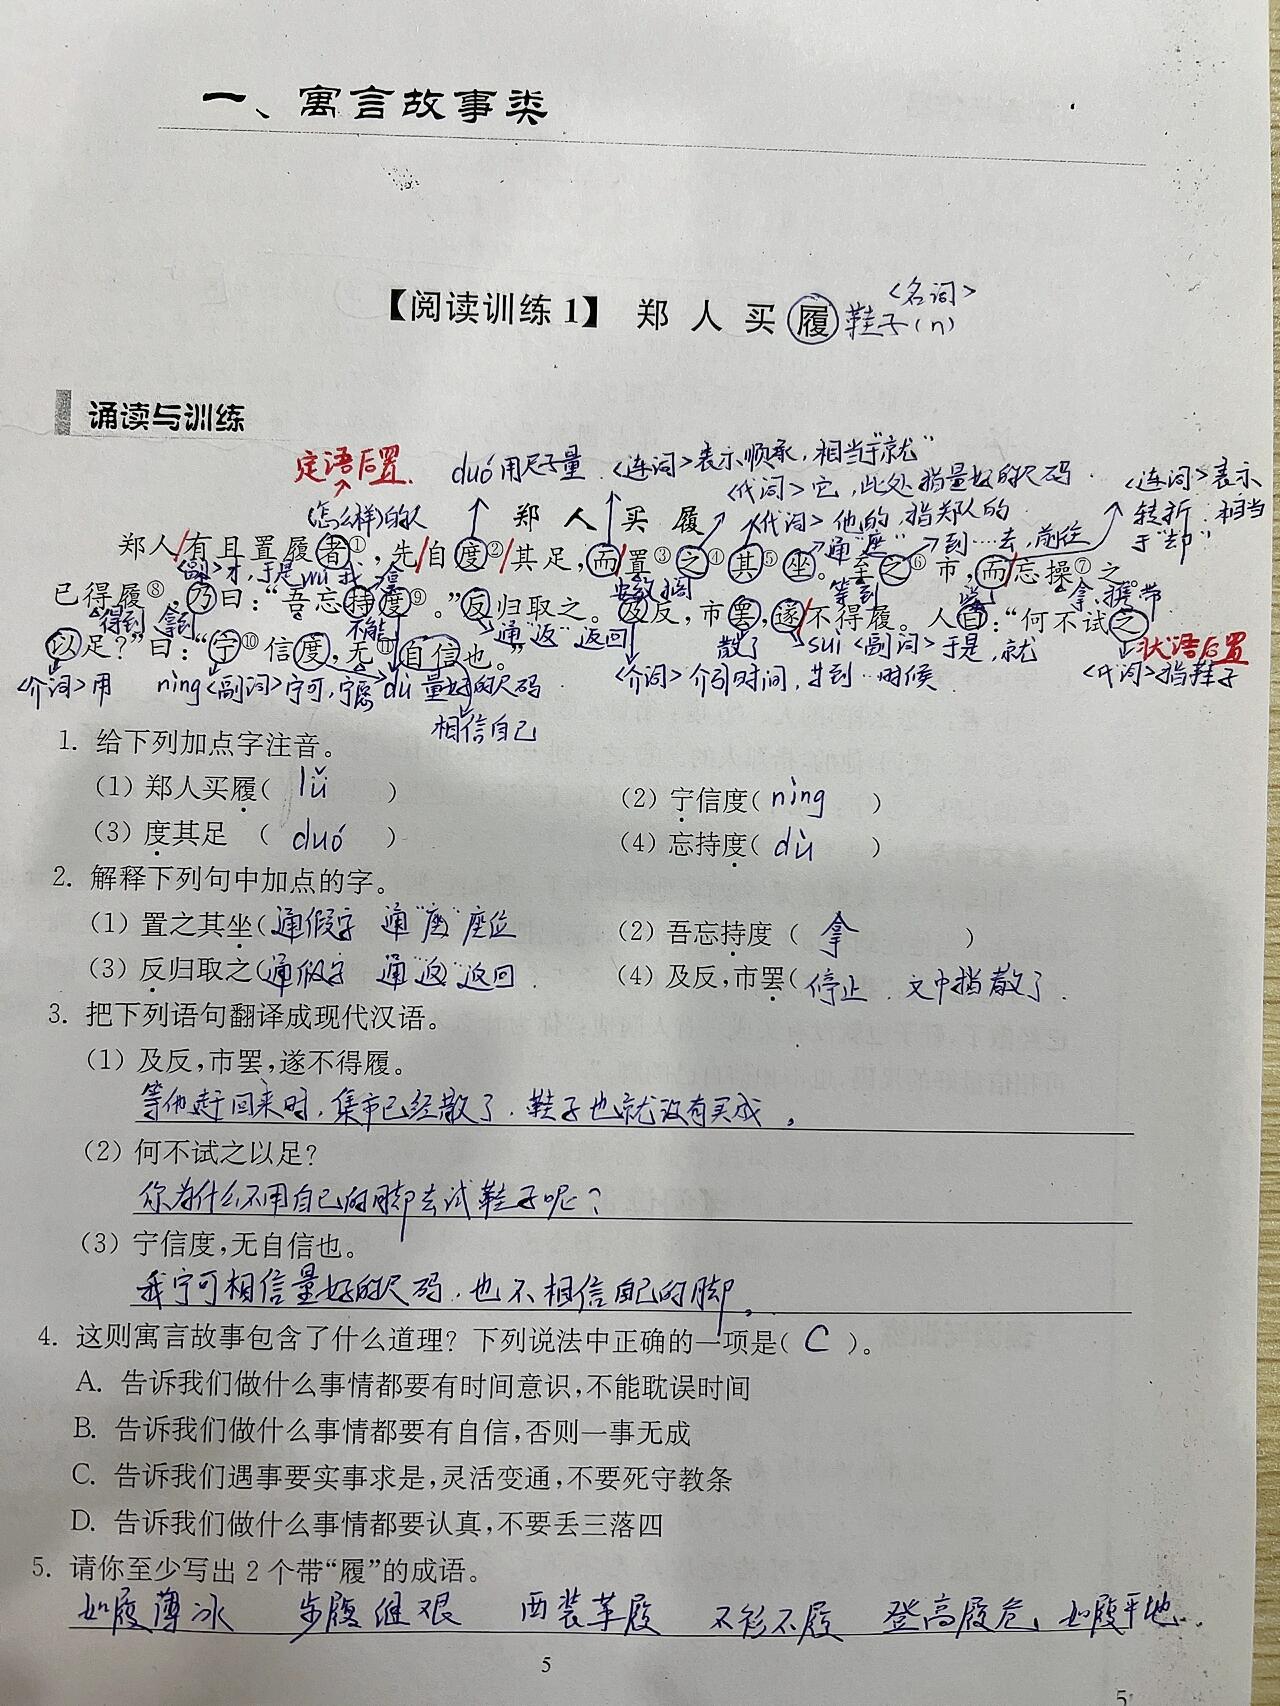 一、寓言故事类
【阅读训练1】 郑人买履 鞋子(n) <名词>
诵读与训练
定语后置 duó用尺子量 <连词>表示顺承,相当于"就"
<代词>它,此处指量好的尺码 <连词>表示
(怎么样)的人 郑人买履 <代词>他的,指郑人的 转折,相当
通"座" 到……去,前往 于"却"
郑人/有且置履者①,先/自度②/其足,而/置③之④其⑤坐。至之⑥市,而/忘操⑦之。
<副>才,于是 wú我 拿 安放,搁 等到 说 拿,携带
已得履⑧,乃曰:“吾忘持度⑨。”反归取之。及反,市罢,遂/不得履。人曰:“何不试之
得到 拿到 不能 通"返"返回 散了 suì<副词>于是,就 状语后置
以足?”曰:“宁⑩信度,无⑪自信也。”
<介词>用 nìng<副词>宁可,宁愿 dù 量好的尺码 <介词>介引时间,等到…时候 <代词>指鞋子
相信自己
1. 给下列加点字注音。
(1) 郑人买履( lǚ )
(2) 宁信度( nìng )
(3) 度其足 ( duó )
(4) 忘持度( dù )
2. 解释下列句中加点的字。
(1) 置之其坐(通假字 通"座"座位
(2) 吾忘持度( 拿 )
(3) 反归取之(通假字 通"返"返回
(4) 及反,市罢(停止.文中指散了.
3. 把下列语句翻译成现代汉语。
(1) 及反,市罢,遂不得履。
等他赶回来时,集市已经散了,鞋子也就没有买成。
(2) 何不试之以足?
你为什么不用自己的脚去试鞋子呢?
(3) 宁信度,无自信也。
我宁可相信量好的尺码,也不相信自己的脚。
4. 这则寓言故事包含了什么道理?下列说法中正确的一项是( C )。
A. 告诉我们做什么事情都要有时间意识,不能耽误时间
B. 告诉我们做什么事情都要有自信,否则一事无成
C. 告诉我们遇事要实事求是,灵活变通,不要死守教条
D. 告诉我们做什么事情都要认真,不要丢三落四
5. 请你至少写出2个带“履”的成语。
如履薄冰 步履继艰 西装革履 不衫不履 登高履危、如履平地..
5
5